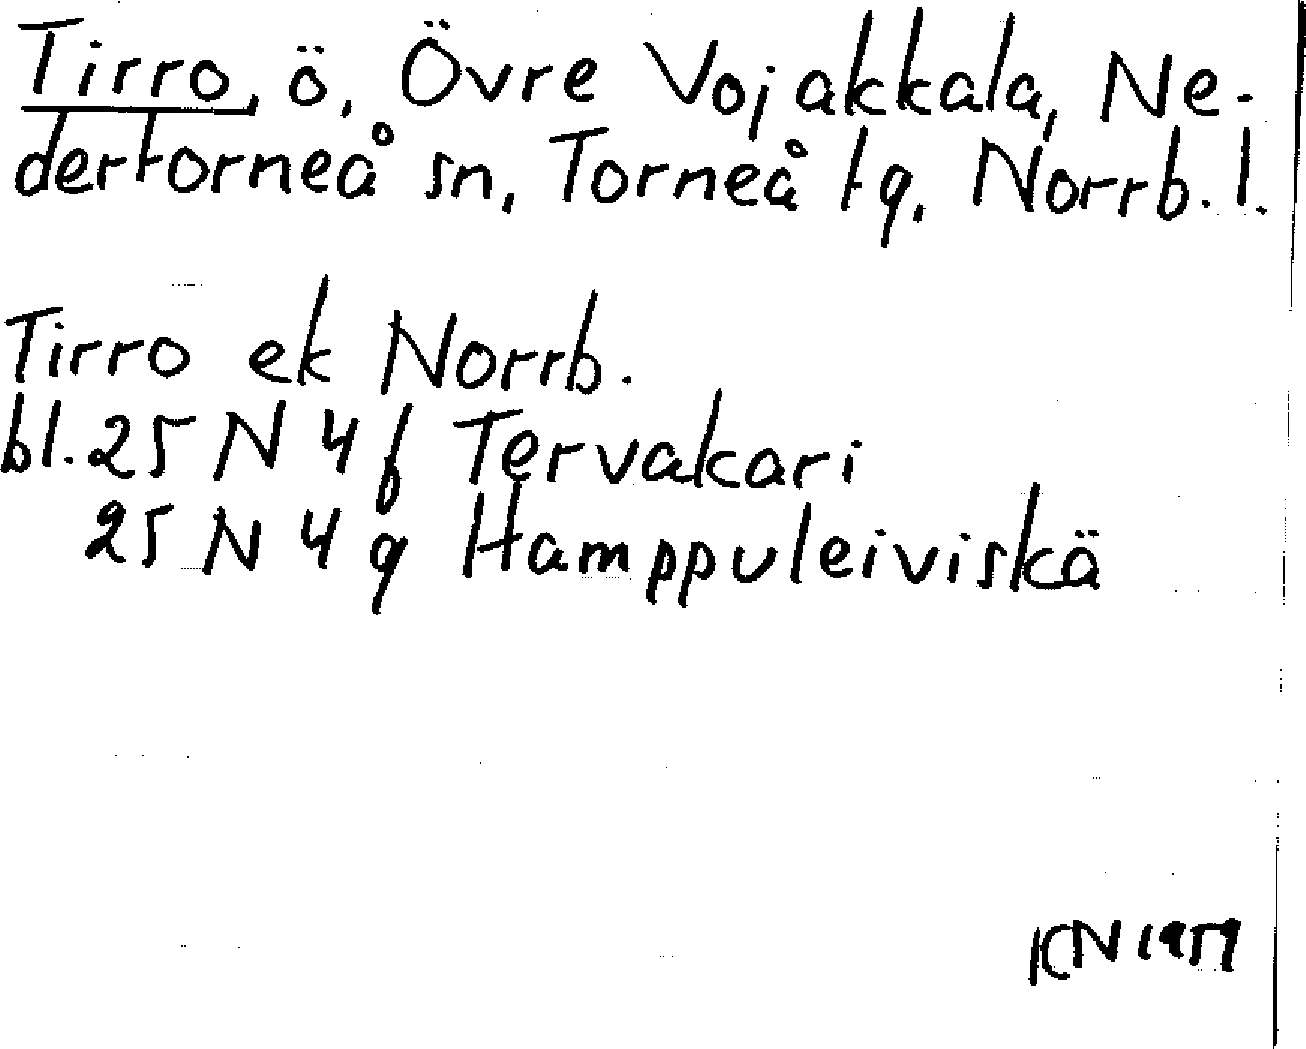 Tirro, ö, Övre Vojakkala, Ne-
dertorneå sn, Torneå tg, Norrb. l.
Tirro ek Norrb.
bl. 25 N 4 f Tervakari
25 N 4 g Hamppuleiviskä
KN 1959